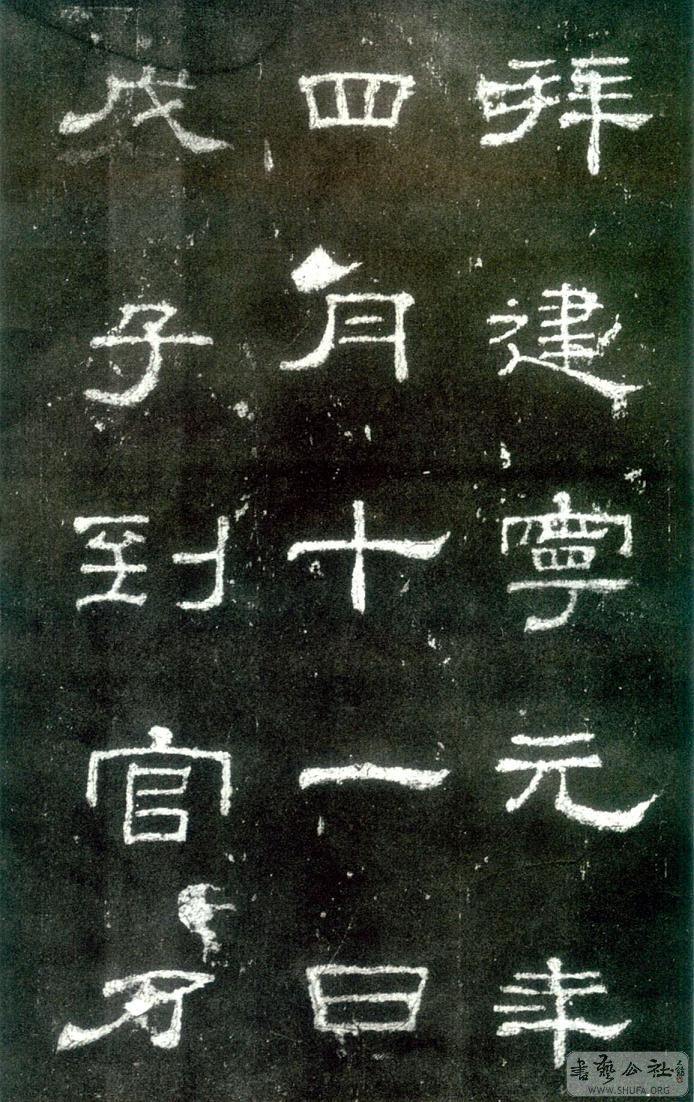 拜建寧元年
四月十一日
戊子到官乃
書藝公社
WWW.SHUFA.ORG